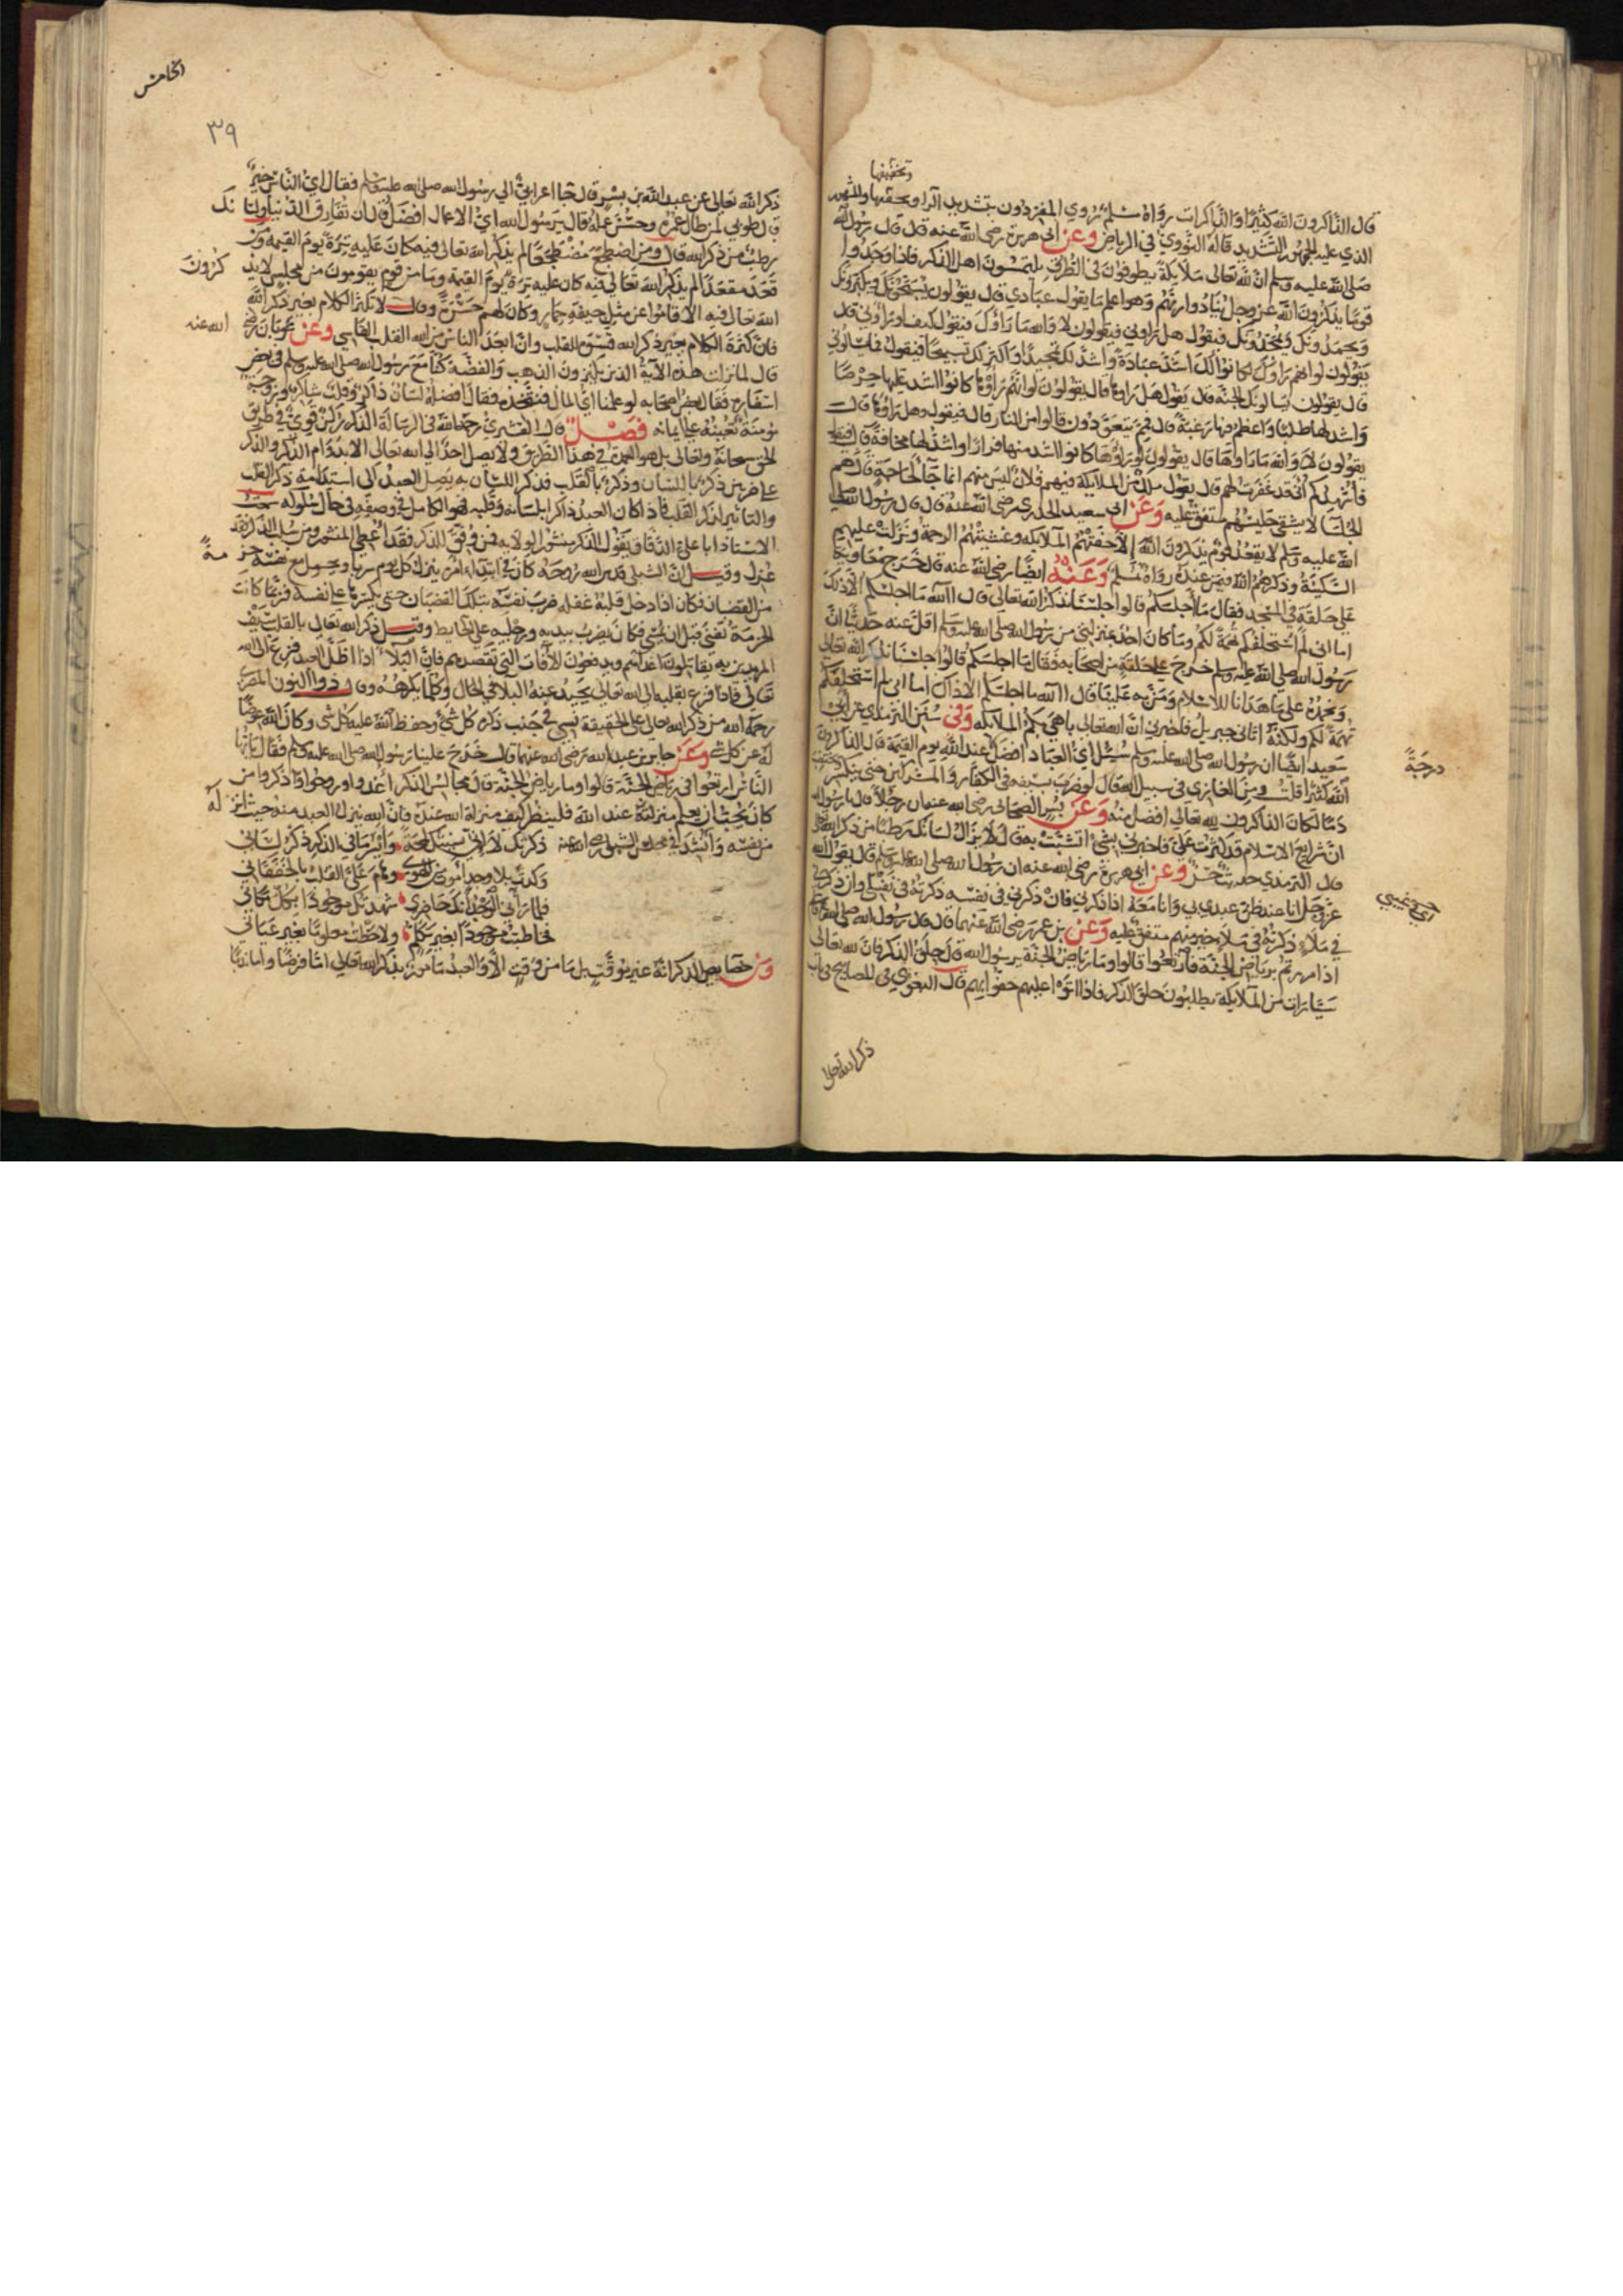 وتخفيفها
قال الذاكرون الله كثيرا والذاكرات رواه مسلم روي المفردون بتشديد الرا وتخفيفها والمشهور
الذي عليه الجمهور التشديد قاله النووي في الرياض وعن ابي هريرة رضي الله عنه قال قال رسول الله
صلى الله عليه وسلم ان لله تعالى ملايكة يطوفون في الطرق يلتمسون اهل الذكر فاذا وجدوا
قوما يذكرون الله عز وجل تنادوا وهو اعلم ما يقول عبادي قال يقولون يسبحونك ويكبرونك
ويحمدونك ويمجدونك فيقول هل راوني فيقولون لا والله ما راوك فيقول كيف لو راوني قال
يقولون لو انهم راوك كانوا لك اشد عبادة واشد لك تمجيدا واكثر لك تسبيحا فيقول فما يسالوني
قال يقولون يسالونك الجنة قال يقول هل راوها قال يقولون لو انهم راوها كانوا اشد عليها حرصا
واشد لها طلبا واعظم فيها رغبة قال فمم يتعوذون قالوا من النار قال فيقول وهل راوها قال
يقولون لا والله ما راوها قال يقولون لو راوها كانوا اشد منها فرارا واشد لها مخافة قال فيقول
فاشهدكم اني قد غفرت لهم قال يقول ملك من الملايكة فيهم فلان ليس منهم انما جا لحاجة قال هم
الجلسا لا يشقى جليسهم متفق عليه وعن ابي سعيد الخدري رضي الله عنه قال قال رسول الله صلى
الله عليه وسلم لا يقعد قوم يذكرون الله الا حفتهم الملايكة وغشيتهم الرحمة ونزلت عليهم
السكينة وذكرهم الله فيمن عنده رواه مسلم وعنه ايضا رضي الله عنه قال خرج معاوية
على حلقة في المسجد فقال ما اجلسكم قالوا جلسنا نذكر الله تعالى قال آلله ما اجلسكم الا ذلك
اما اني لم استحلفكم تهمة لكم وما كان احد بمنزلتي من رسول الله صلى الله عليه وسلم اقل عنه حديثا ان
رسول الله صلى الله عليه وسلم خرج على حلقة من اصحابه فقال ما اجلسكم قالوا جلسنا نذكر الله تعالى
ونحمده على ما هدانا للاسلام ومن به علينا قال آلله ما اجلسكم الا ذاك اما اني لم استحلفكم
تهمة لكم ولكنه اتاني جبريل فاخبرني ان الله تعالى باهى بكم الملايكه وفي سنن الترمذي عن ابي
سعيد ايضا ان رسول الله صلى الله عليه وسلم سئل اي العباد افضل عند الله يوم القيمة قال الذاكرون
درجة
الله كثيرا قلت ومن الغازي في سبيل الله قال لو ضرب بسيفه في الكفار والمشركين حتى ينكسر
دما لكان الذاكرون لله تعالى افضل منه وعن بسر الصحابي رضي الله عنه ان رجلا قال يا رسول الله
ان شرايع الاسلام قد كثرت علي فاخبرني بشي اتشبث به قال لا يزال لسانك رطبا من ذكر الله
قال الترمذي حديث حسن وعن ابي هريرة رضي الله عنه ان رسول الله صلى الله عليه وسلم قال يقول الله
عز وجل انا عند ظن عبدي بي وانا معه اذا ذكرني فان ذكرني في نفسه ذكرته في نفسي وان ذكرني
في ملا ذكرته في ملا خير منهم متفق عليه وعن بن عمر رضي الله عنهما قال قال رسول الله صلى الله
اذا مررتم برياض الجنة فارتعوا قالوا وما رياض الجنة يرسول الله قال حلق الذكر فان لله تعالى
سيارات من الملايكة يطلبون حلق الذكر فاذا اتوا عليهم حفوا بهم قال البغوي في المصابيح
الخامس
٣٩
ذكر الله تعالى عن عبد الله بن بسر قال جا اعرابي الى رسول الله صلى الله عليه وسلم فقال اي الناس خير
قال طوبي لمن طال عمره وحسن عمله وقال يرسول الله اي الاعمال افضل قال ان تفارق الدنيا ولسانك
رطب من ذكر الله قال ومن اضطجع مضطجعا لم يذكر الله تعالى فيه كان عليه ترة يوم القيمة ومن
قعد مقعدا لم يذكر الله تعالى فيه كان عليه ترة يوم القيمة وما من قوم يقومون من مجلس لا يذكرون
الله تعالى فيه الا قاموا عن مثل جيفة حمار وكان لهم حسرة وقال لا تكثر الكلام بغير ذكر الله
فان كثرة الكلام بغير ذكر الله قسوة القلب وان ابعد الناس من الله القلب القاسي وعن ثوبان رضي الله عنه
قال لما نزلت هذه الاية الذين يكنزون الذهب والفضة كنا مع رسول الله صلى الله عليه وسلم في بعض
اسفاره فقال بعض اصحابه لو علمنا اي المال فنتخذه فقال افضله لسان ذاكر وقلب شاكر وزوجة
مومنة تعينه على ايمانه فصل قال القشيري رحمه الله في الرسالة الذكر ركن قوي في طريق
الحق سبحانه وتعالى بل هو العمدة في هذا الطريق ولا يصل احد الى الله تعالى الا بدوام الذكر والذكر
على ضربين ذكر باللسان وذكر بالقلب فذكر اللسان به يصل العبد الى استدامة ذكر القلب
والتاثير لذكر القلب فاذا كان العبد ذاكرا بلسانه وقلبه فهو الكامل في وصفه في حال سلوكه سمعت
الاستاذ ابا علي الدقاق يقول الذكر منشور الولاية فمن وفق للذكر فقد اعطي المنشور ومن سلب الذكر فقد
عزل وقيل ان الشبلي قدس الله روحه كان في ابتداء امره ينزل كل يوم سربا ويحمل مع نفسه حزمة
من القضبان فكان اذا دخل قلبه غفلة ضرب نفسه بتلك القضبان حتى يكسرها على نفسه فربما كانت
الحزمة تفنى قبل ان يمسي فكان يضرب بيديه ورجليه على الحايط وقيل ذكر الله تعالى بالقلب سيف
المريدين به يقاتلون اعداهم وبه يدفعون الافات التي تقصدهم فان البلا اذا اظل العبد فزع الى الله
تعالى فاذا فزع بقلبه الى الله تعالى يحيد عنه البلا في الحال وكلما يكرهه وقال ذوا النون المصري
رحمه الله من ذكر الله تعالى على الحقيقة نسي في جنب ذكره كل شي وحفظ الله عليه كل شي وكان الله عوضا
له عن كل شي وعن جابر بن عبد الله رضي الله عنهما قال خرج علينا رسول الله صلى الله عليه وسلم فقال يا ايها
الناس ارتعوا في رياض الجنة قالوا وما رياض الجنة قال مجالس الذكر اغدوا وروحوا واذكروا من
كان يحب ان يعلم منزلته عند الله فلينظر كيف منزلة الله عنده فان الله ينزل العبد منه حيث انزله
من نفسه وانشد في مجلس الشبلي رضي الله عنه ذكرتك لا اني نسيتك لمحة وايسر ما في الذكر ذكر لساني
وكدت بلا وجد اموت من الهوى وهام علي القلب بالخفقان
فلما راني الوجد انك حاضري شهدتك موجودا بكل مكاني
فخاطبت موجودا بغير تكلم ولاحظت معلوما بغير عياني
ومن خصايص الذكر انه غير موقت بل ما من وقت الا والعبد مامور بذكر الله تعالى اما فرضا واما ندبا